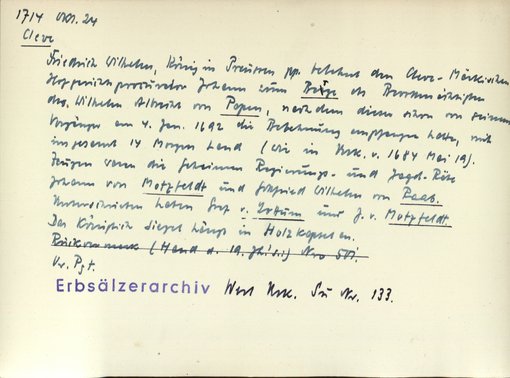 1714 Okt. 24
Cleve
Friedrich Wilhelm, König in Preussen pp. belehnt den Cleve-Märkischen
Hofgerichtsprocurator Johann zum Berge als Bevollmächtigten
des Wilhelm Albrecht von Papen, nachdem dieser schon von seinem
Vorgänger am 4. Jan. 1692 die Belehnung empfangen hatte, mit
insgesamt 14 Morgen Land (wie in Urk. v. 1684 Mai 19).
Zeugen waren die Geheimen Regierungs- und Jagd-Räte
Johann von Motzfeldt und Gottfried Wilhelm von Raab.
Unterschrieben haben v. und J. v. Motzfeldt.
Das Königliche Siegel hängt in Holzkapsel an.
Rückvermerk (Hand d. 19. Jh.s.) Nro 501.
Or. Pgt.
Erbsälzerarchiv Werl Urk. Nr. 133.